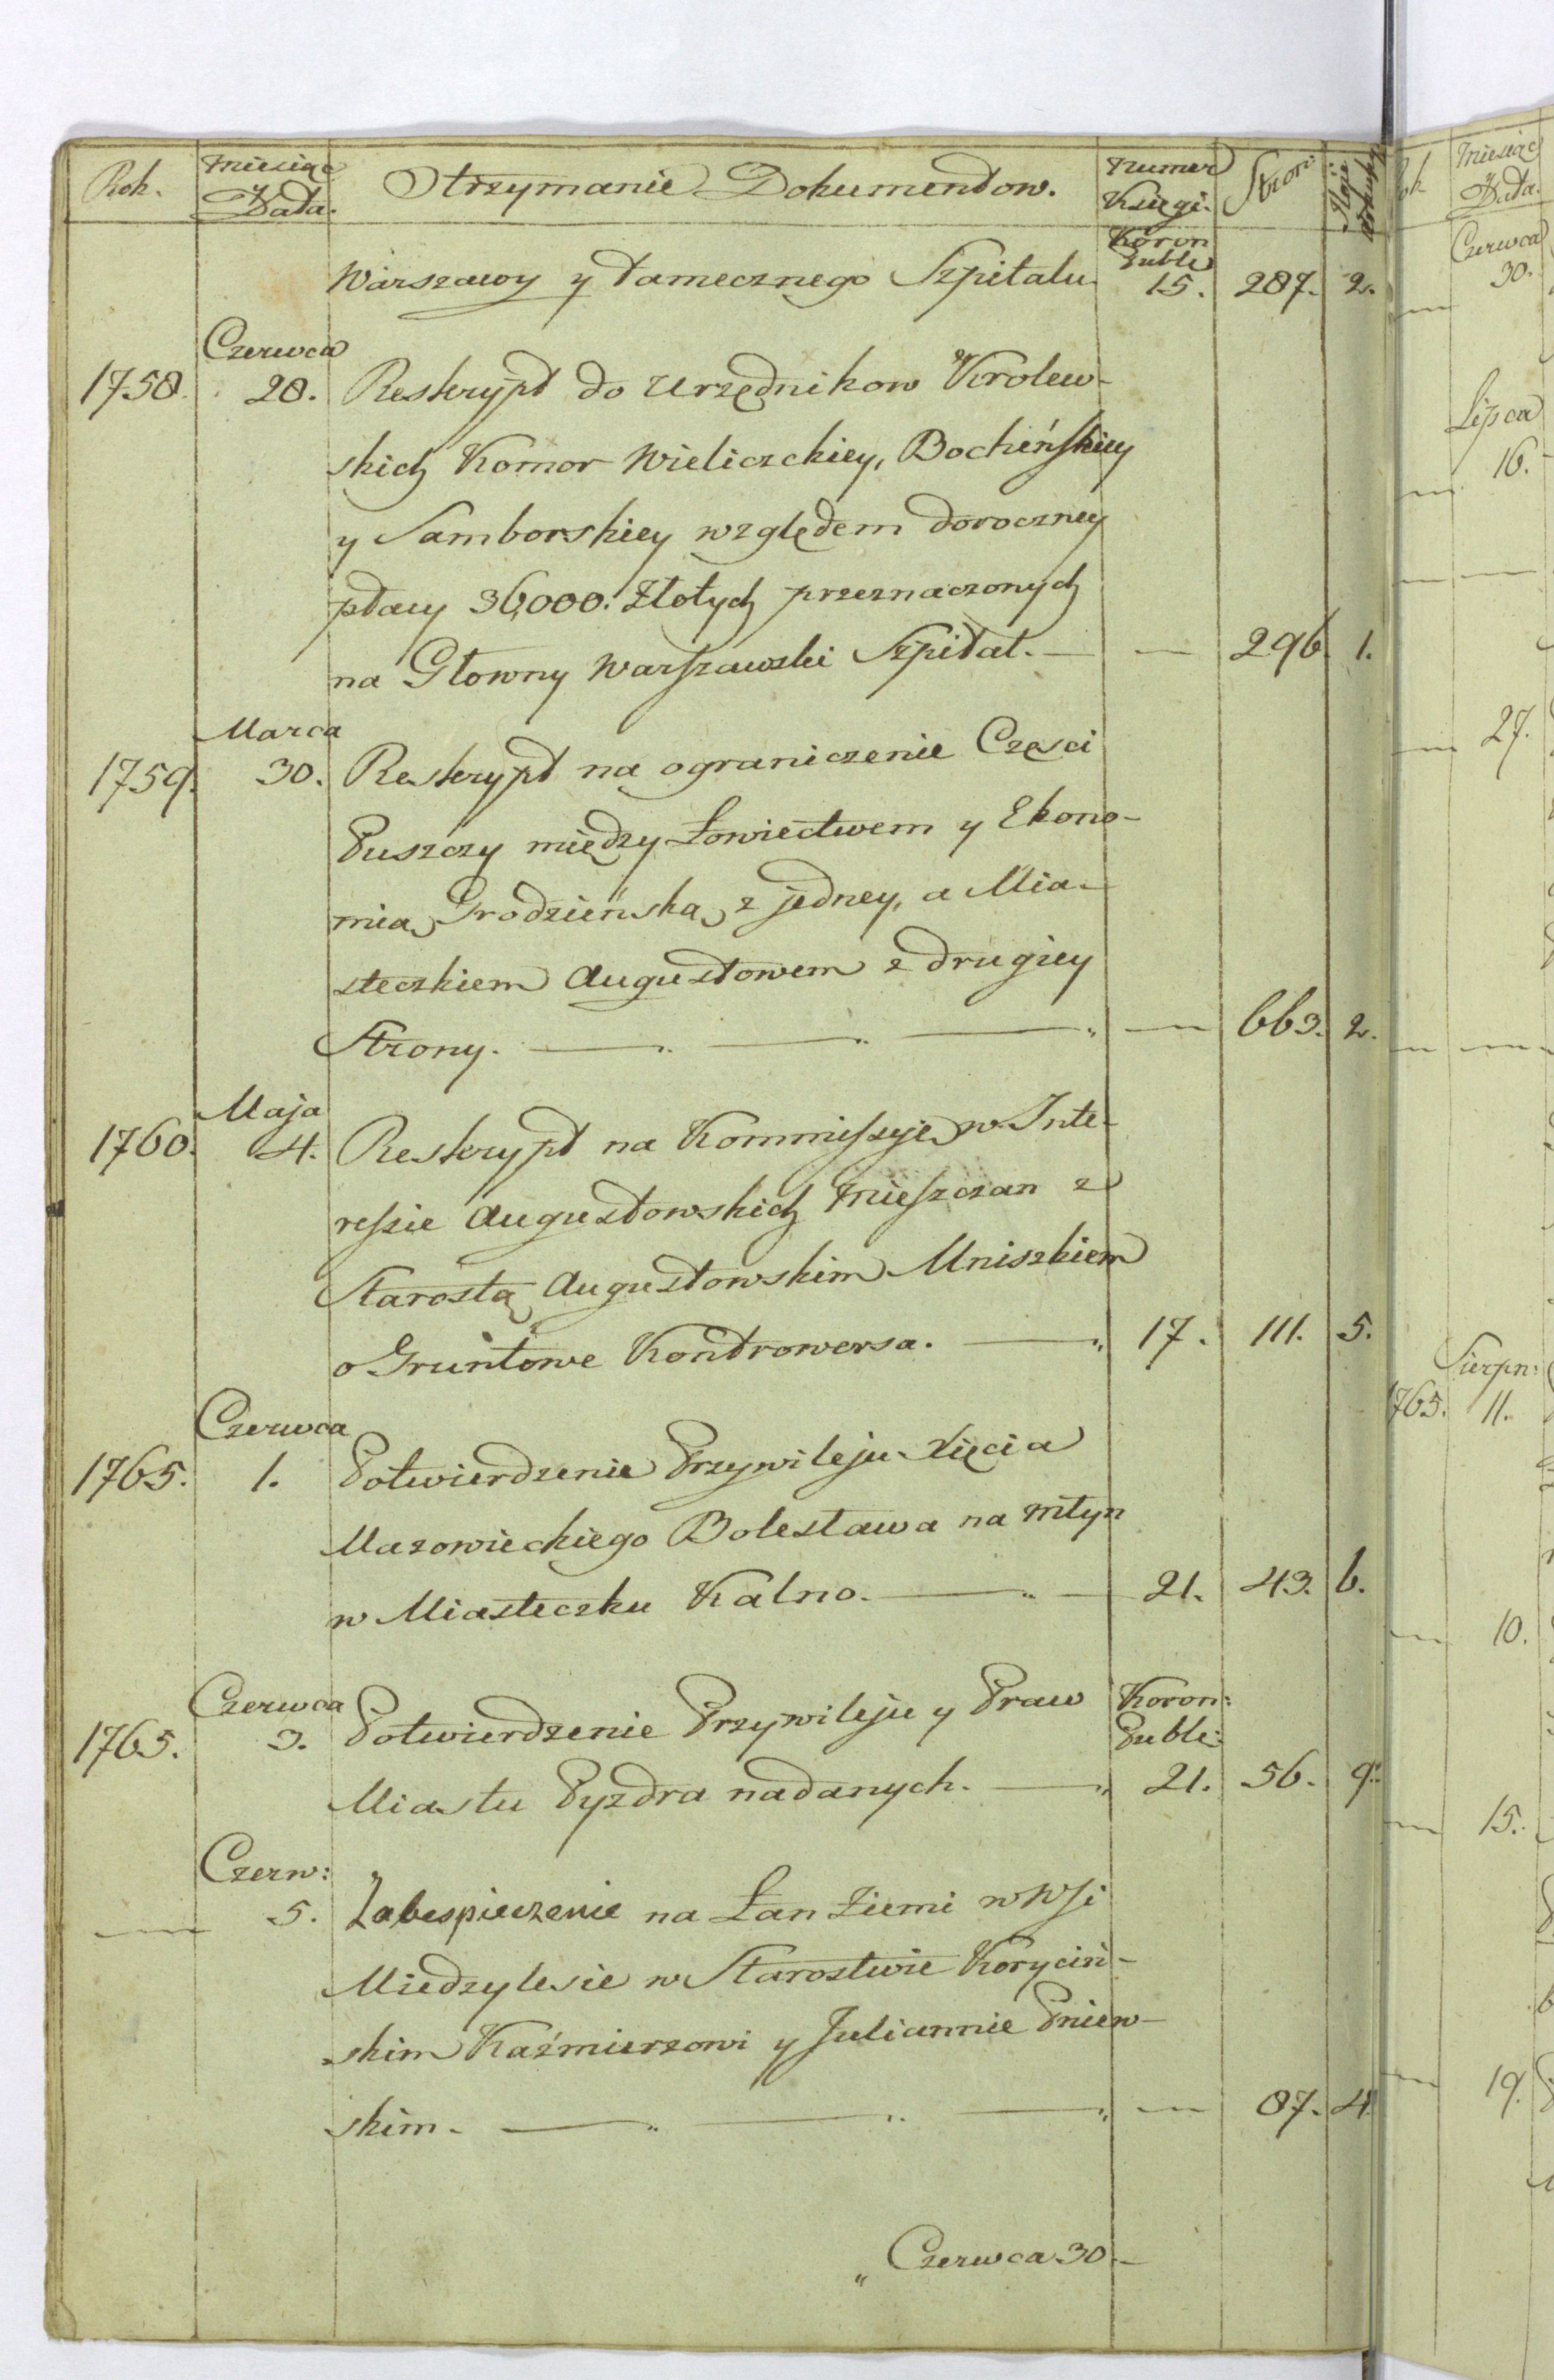 Rok. Miesiąc Data. Otrzymanie Dokumentow. Numer Księgi. Stron: Ilość
Koron Publi
Warszawy y tamecznego Szpitalu 15. 287. 2.
Czerwca
1758. 28. Reskrypt do Urzędnikow Krolew-
skich Komor Wieliczckiey, Bocheńskiey
y Samborskiey względem doroczney
płacy 36,000. Złotych przeznaczonych
na Głowny Warszawski Szpital. — — 296. 1.
Marca
1759. 30. Reskrypt na ograniczenie Częsci
Puszczy między Łowiectwem y Ekono-
mią Grodzieńską z jedney, a Mia-
steczkiem Augustowem z drugiey
Strony. — — — — 663. 2.
Maja
1760. 4. Reskrypt na Kommissyę w Inte-
ressie Augustowskich Mieszczan z
Starostą Augustowskim Mniszkiem
o Gruntowe Kontrowersa. — 17. 111. 5.
Czerwca
1765. 1. Potwierdzenie Przywileju Xięcia
Mazowieckiego Bolesława na Młyn
w Miasteczku Kalno. — — 21. 43. 6.
Czerwca Koron:
1765. 3. Potwierdzenie Przywileju y Praw Publi:
Miastu Pyzdra nadanych. — 21. 56. 9.
Czerw:
— 5. Zabespieczenie na Łan Ziemi w Wsi
Miedzylesie w Starostwie Koryciń-
skim Kaźmierzowi y Juliannie Pniew-
skim. — — — — 87. 4.
„ Czerwca 30. —
Miesiąc
Data.
Czerwca
30.
Lipca
16.
27.
Sierpn:
1765. 11.
10.
15.
19.